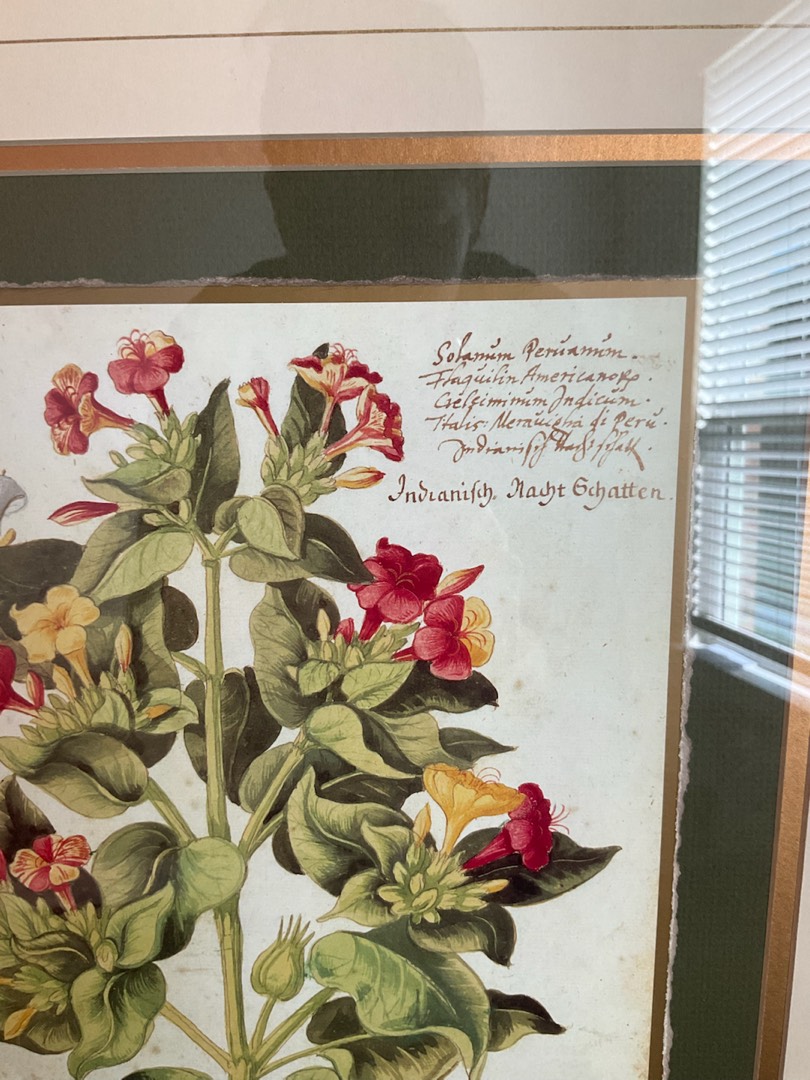 Solanum Peruanum.
Americanor.
Indicum.
Italis: Meraviglia di Peru.
Indianisch Nacht schatt.
Indianisch. Nacht Schatten.